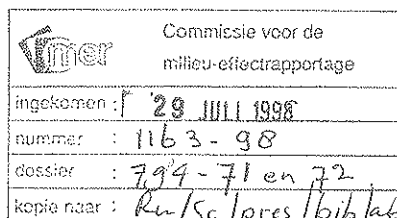 mer
Commissie voor de
milieu-effectrapportage
ingekomen : 29 JULI 1998
nummer : 1163-98
dossier : 794-71 en 72
kopie naar : Rn/Sc/pres/bib/